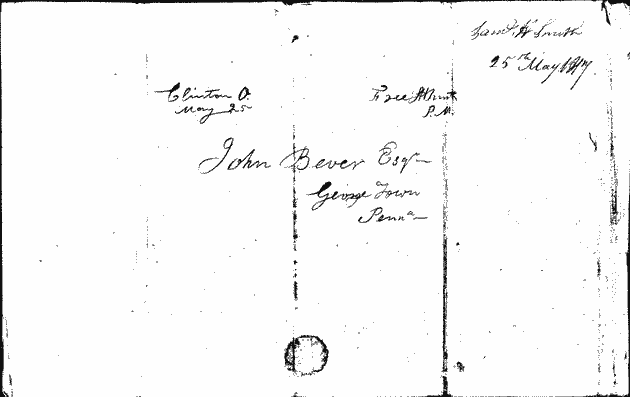 Saml. H Smith
25th May 1817.
Clinton O.
May 25
Free
P.M.
John Bever Esqr
George Town
Penna